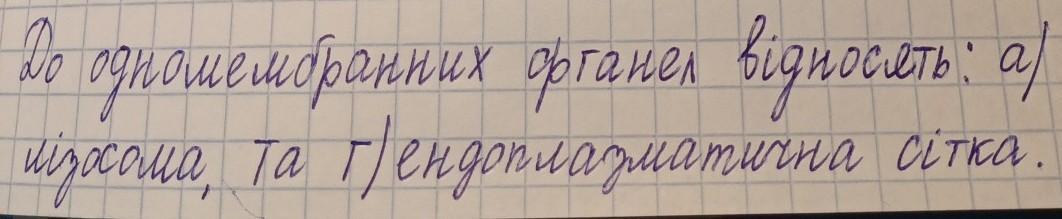 До одномембранних органел відносять: а)
лізосома, та г) ендоплазматична сітка.